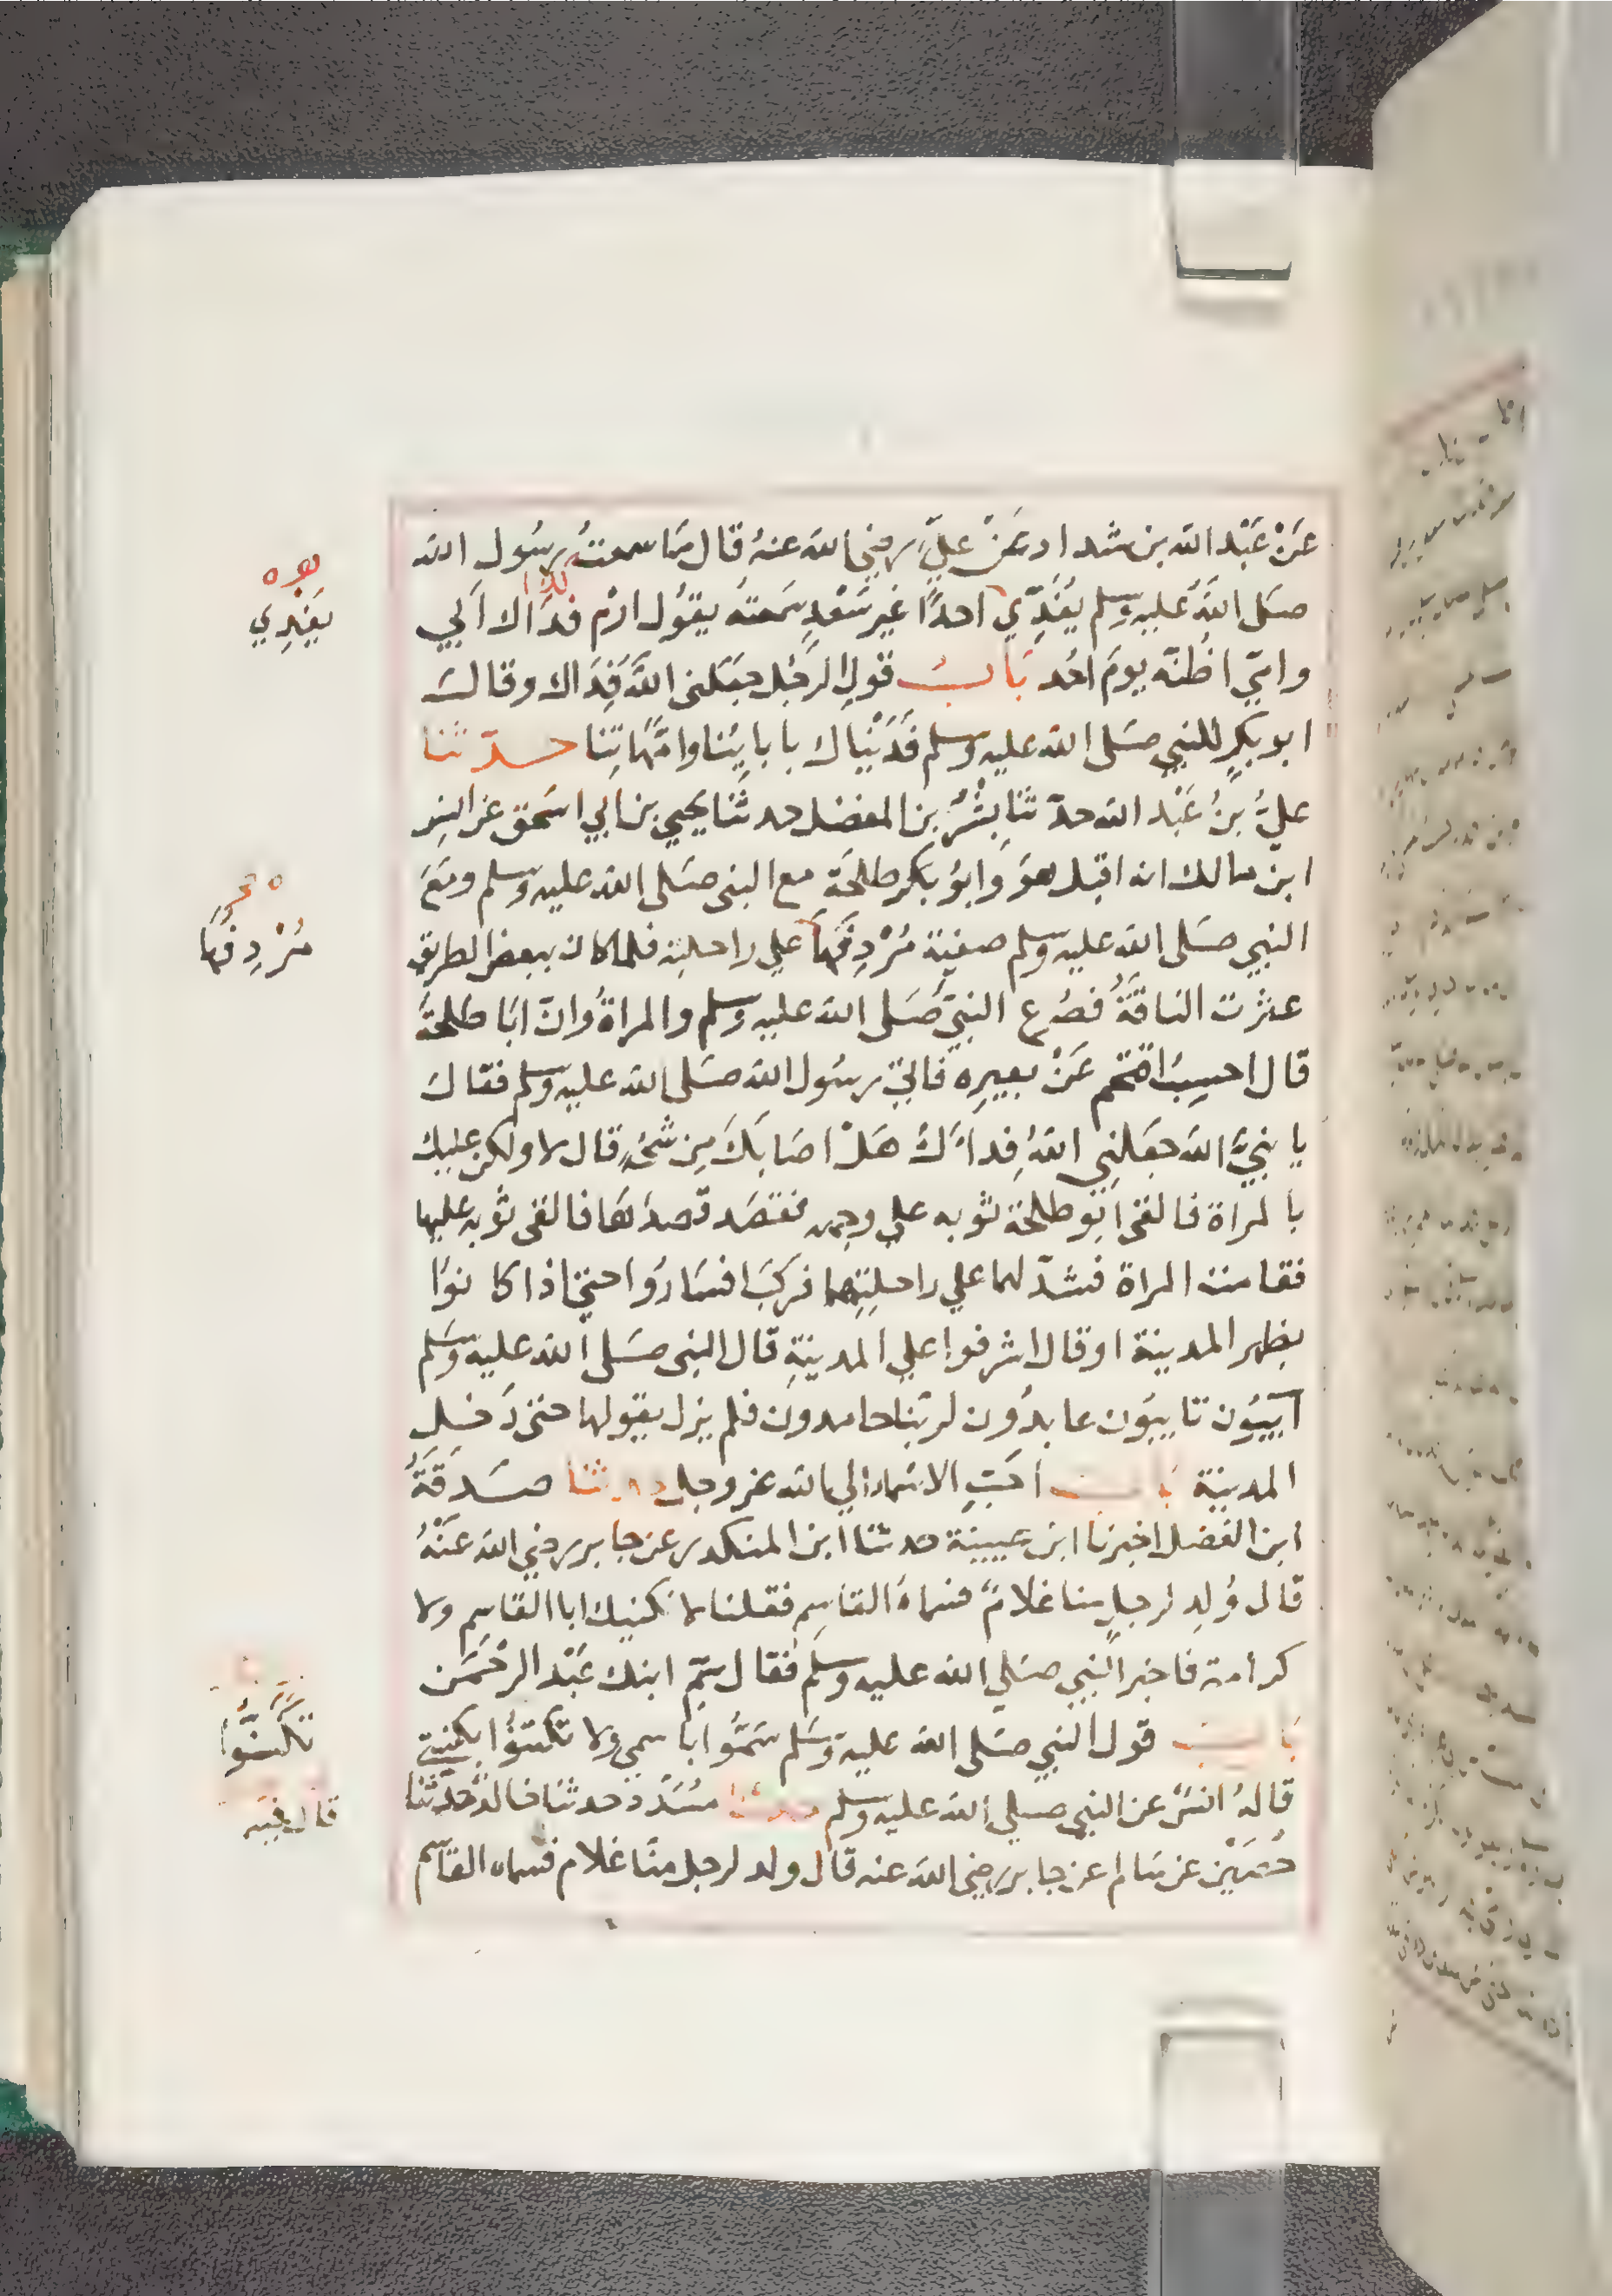 عَنْ عَبْد الله بن شداد عَنْ عليّ رضي الله عنهُ قال مَا سمعتُ رسُول الله
صَلى اللهُ عليه وسلم يُفَدِّي احدًا غير سَعْدٍ سَمعته يقوُل ارْم فدَاك اَبي
وامّي اظنّه يومَ احُد بَابُ قول الرجُل جَعَلنى اللهُ فِدَاك وقال
ابو بكرٍ للنبي صَلى الله عليه وسلم فَدَيْنَاك بابايِنا وامّهَاتِنا حدّثنا
عليُّ بنُ عَبْد الله حدّثنا بِشْرُ بن المفضل حدثنا يحيي بن ابي اسحق عن انس
ابن مالك انه اقبل هوَ وابوُ بكر طلحَة مع النبى صَلى الله عليه وسلم ومَعَ
النبي صَلى الله عليه وسلم صفية مُرْدِفُهَا علي راحلته فلما كان ببعض الطريق
عثرت الناقةُ فصُرع النبيّ صَلى الله عليه وسلم والمراةُ وانّ ابَا طلحةَ
قال احسِبُ اقتحم عَنْ بعيرِه فاتي رسُول الله صَلى الله عليه وسلم فقال
يا نبيَّ الله جَعَلنِي اللهُ فِداءَكَ هَلْ اصَابَكَ مِن شَيْءٍ قال لا ولكن عليك
بالمراة فالقى ابُو طلحة ثوبه علي وجهه فقصَد قصدَهَا فالقى ثوبه عليها
فقامت المراة فشدّ لهما علي راحلتِهِما فركبَا فسَارُوا حتيّ اذا كانوُا
بظهر المدينة او قال اشرفوا علي المدينةِ قال النبى صَلى الله عليه وسَلم
آيبُون تايبُون عابدُون لربّنا حامدون فلم يزل يقولها حتى دَخل
المدينة بَاب اَحَبِّ الاسْماء الي الله عز وجل حدثنا صَدَقَةُ
ابن الفضل اخبرنا ابن عيينة حدثنا ابن المنكدر عن جابر رضي الله عنْهُ
قال وُلِد لرجلٍ منا غلامٌ فسَماهُ القاسِم فقلنا لا نكنيك ابا القاسِم ولا
كرامة فاخبر النبي صَلي الله عليه وسلم فقال سَمِّ ابنك عَبْد الرحْمَن
بَاب قول النبي صَلى الله عليه وسَلم سَمُّوا باسمي ولا تكتنُوا بكنيتي
قالهُ انسٌ عن النبي صلي الله عليه وسلم حدثنا مُسَدَّد حدثنا خالد حدّثنا
حُصَيْن عن سَالم عن جابر رضي الله عنه قال ولد لرجل منّا غلام فسماه القاسم
يَفْدِي
مُرْدِفَهَا
تَكَنَّوْا
قال فيه